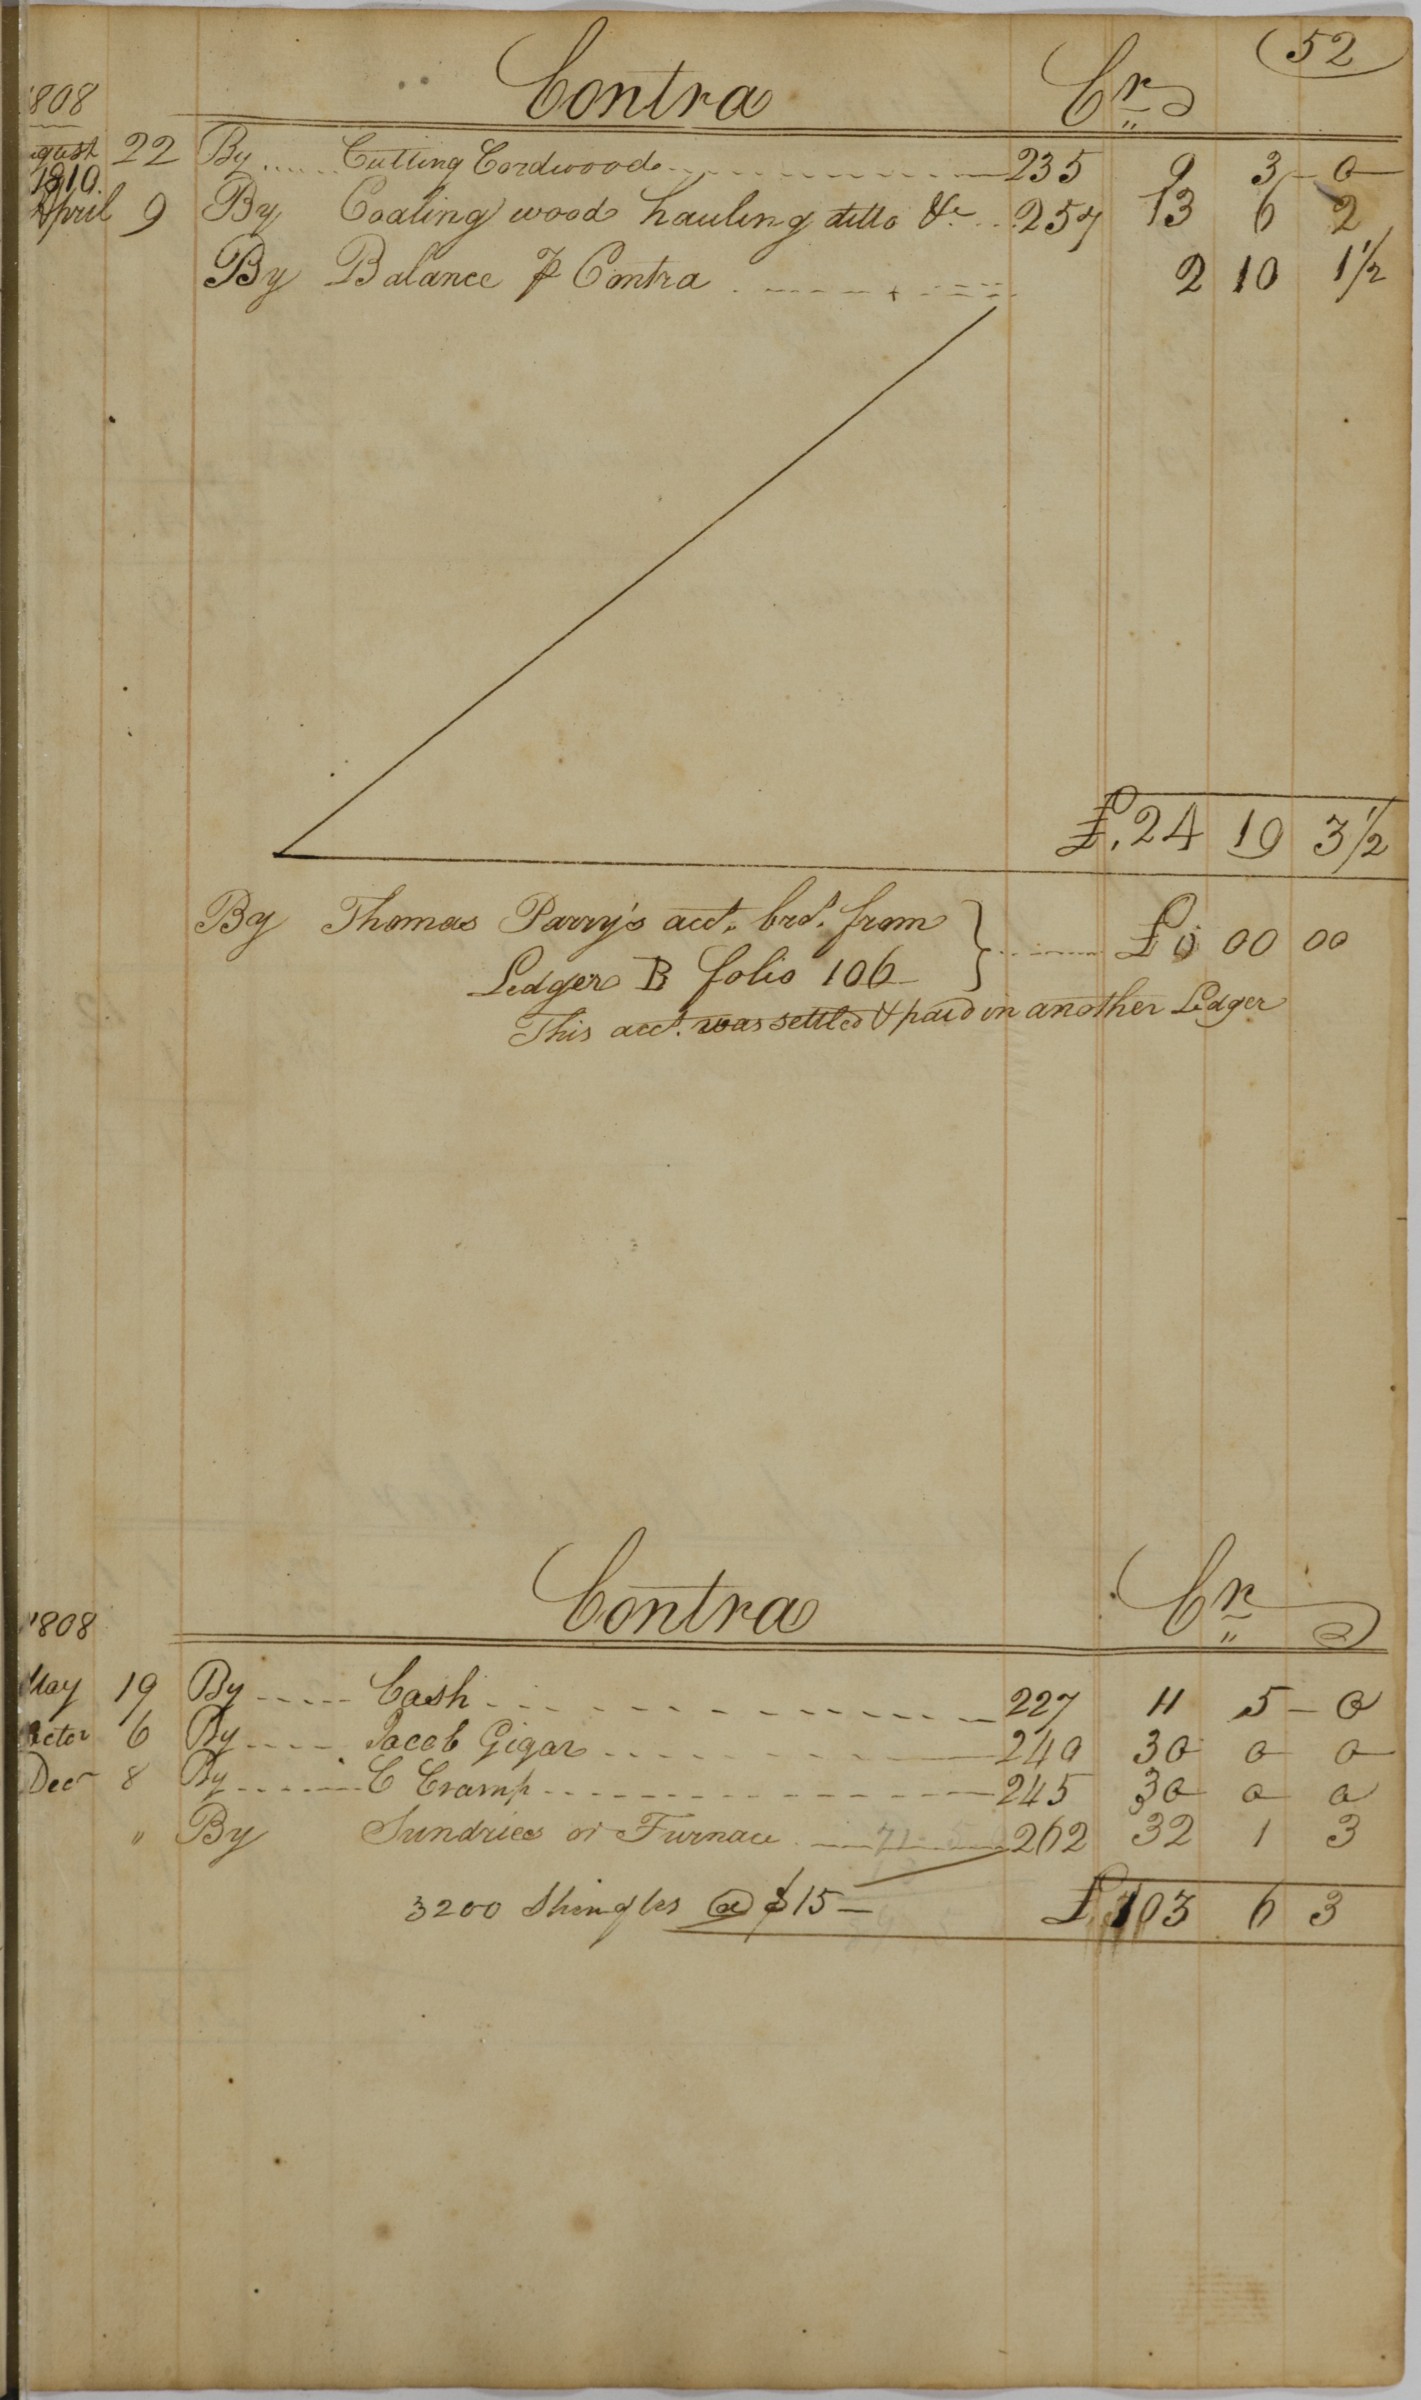 52
Contra Cr
1808
August 22 By Cutting Cordwood 235 9 3 0
1810
April 9 By Coaling wood hauling ditto &c 257 13 6 2
By Balance ⅌ Contra 2 10 1½
£. 24 19 3½
By Thomas Parry's acct. brot. from
Ledger B folio 106 £0 00 00
This acct. was settled & paid in another Ledger
Contra Cr
1808
May 19 By Cash 227 11 5 0
Octor 6 By Jacob Gigar 240 30 0 0
Decr 8 By C Cramp 245 30 0 0
" By Sundries or Furnace 262 32 1 3
3200 Shingles @ $15 £ 103 6 3